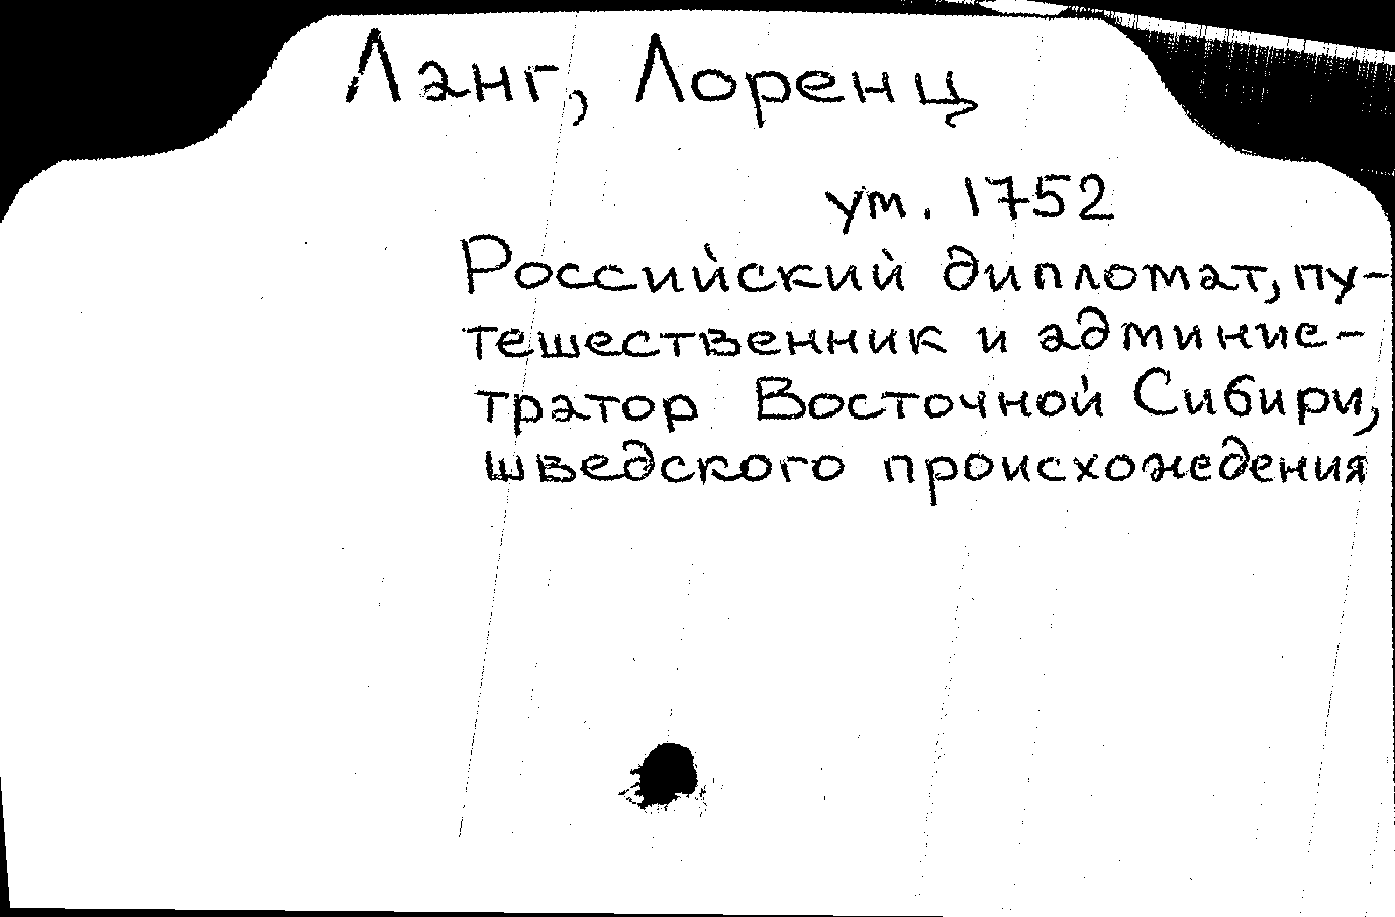 Ланг, Лоренц
ум. 1752
Российский дипломат, пу-
тешественник и админис-
тратор Восточной Сибири,
шведского происхождения